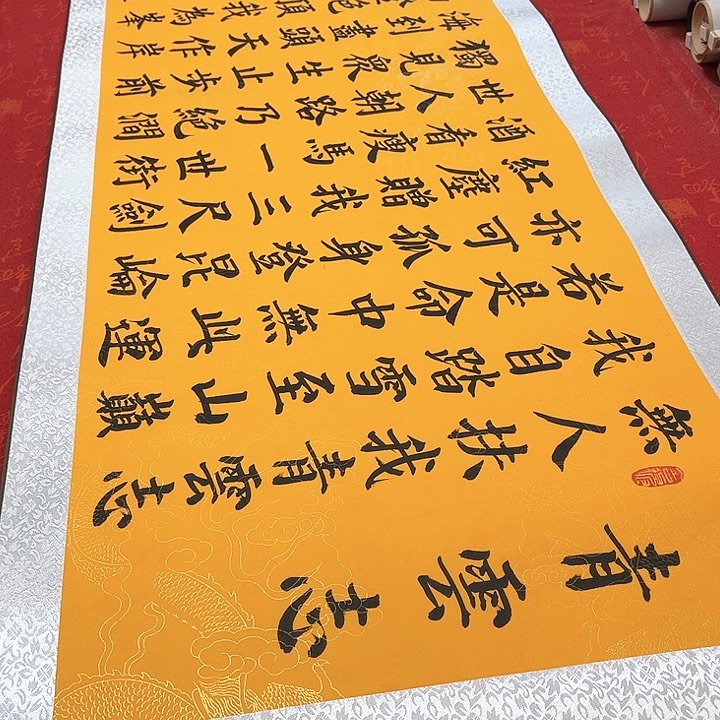 青雲志
無人扶我青雲志
我自踏雪至山巔
若是命中無此運
亦可孤身登昆崘
紅塵贈我三尺劍
酒看瘦馬一世
世人朝路乃絶澗
獨見衆生止步前
海到盡頭天作岸
絶頂我為峯